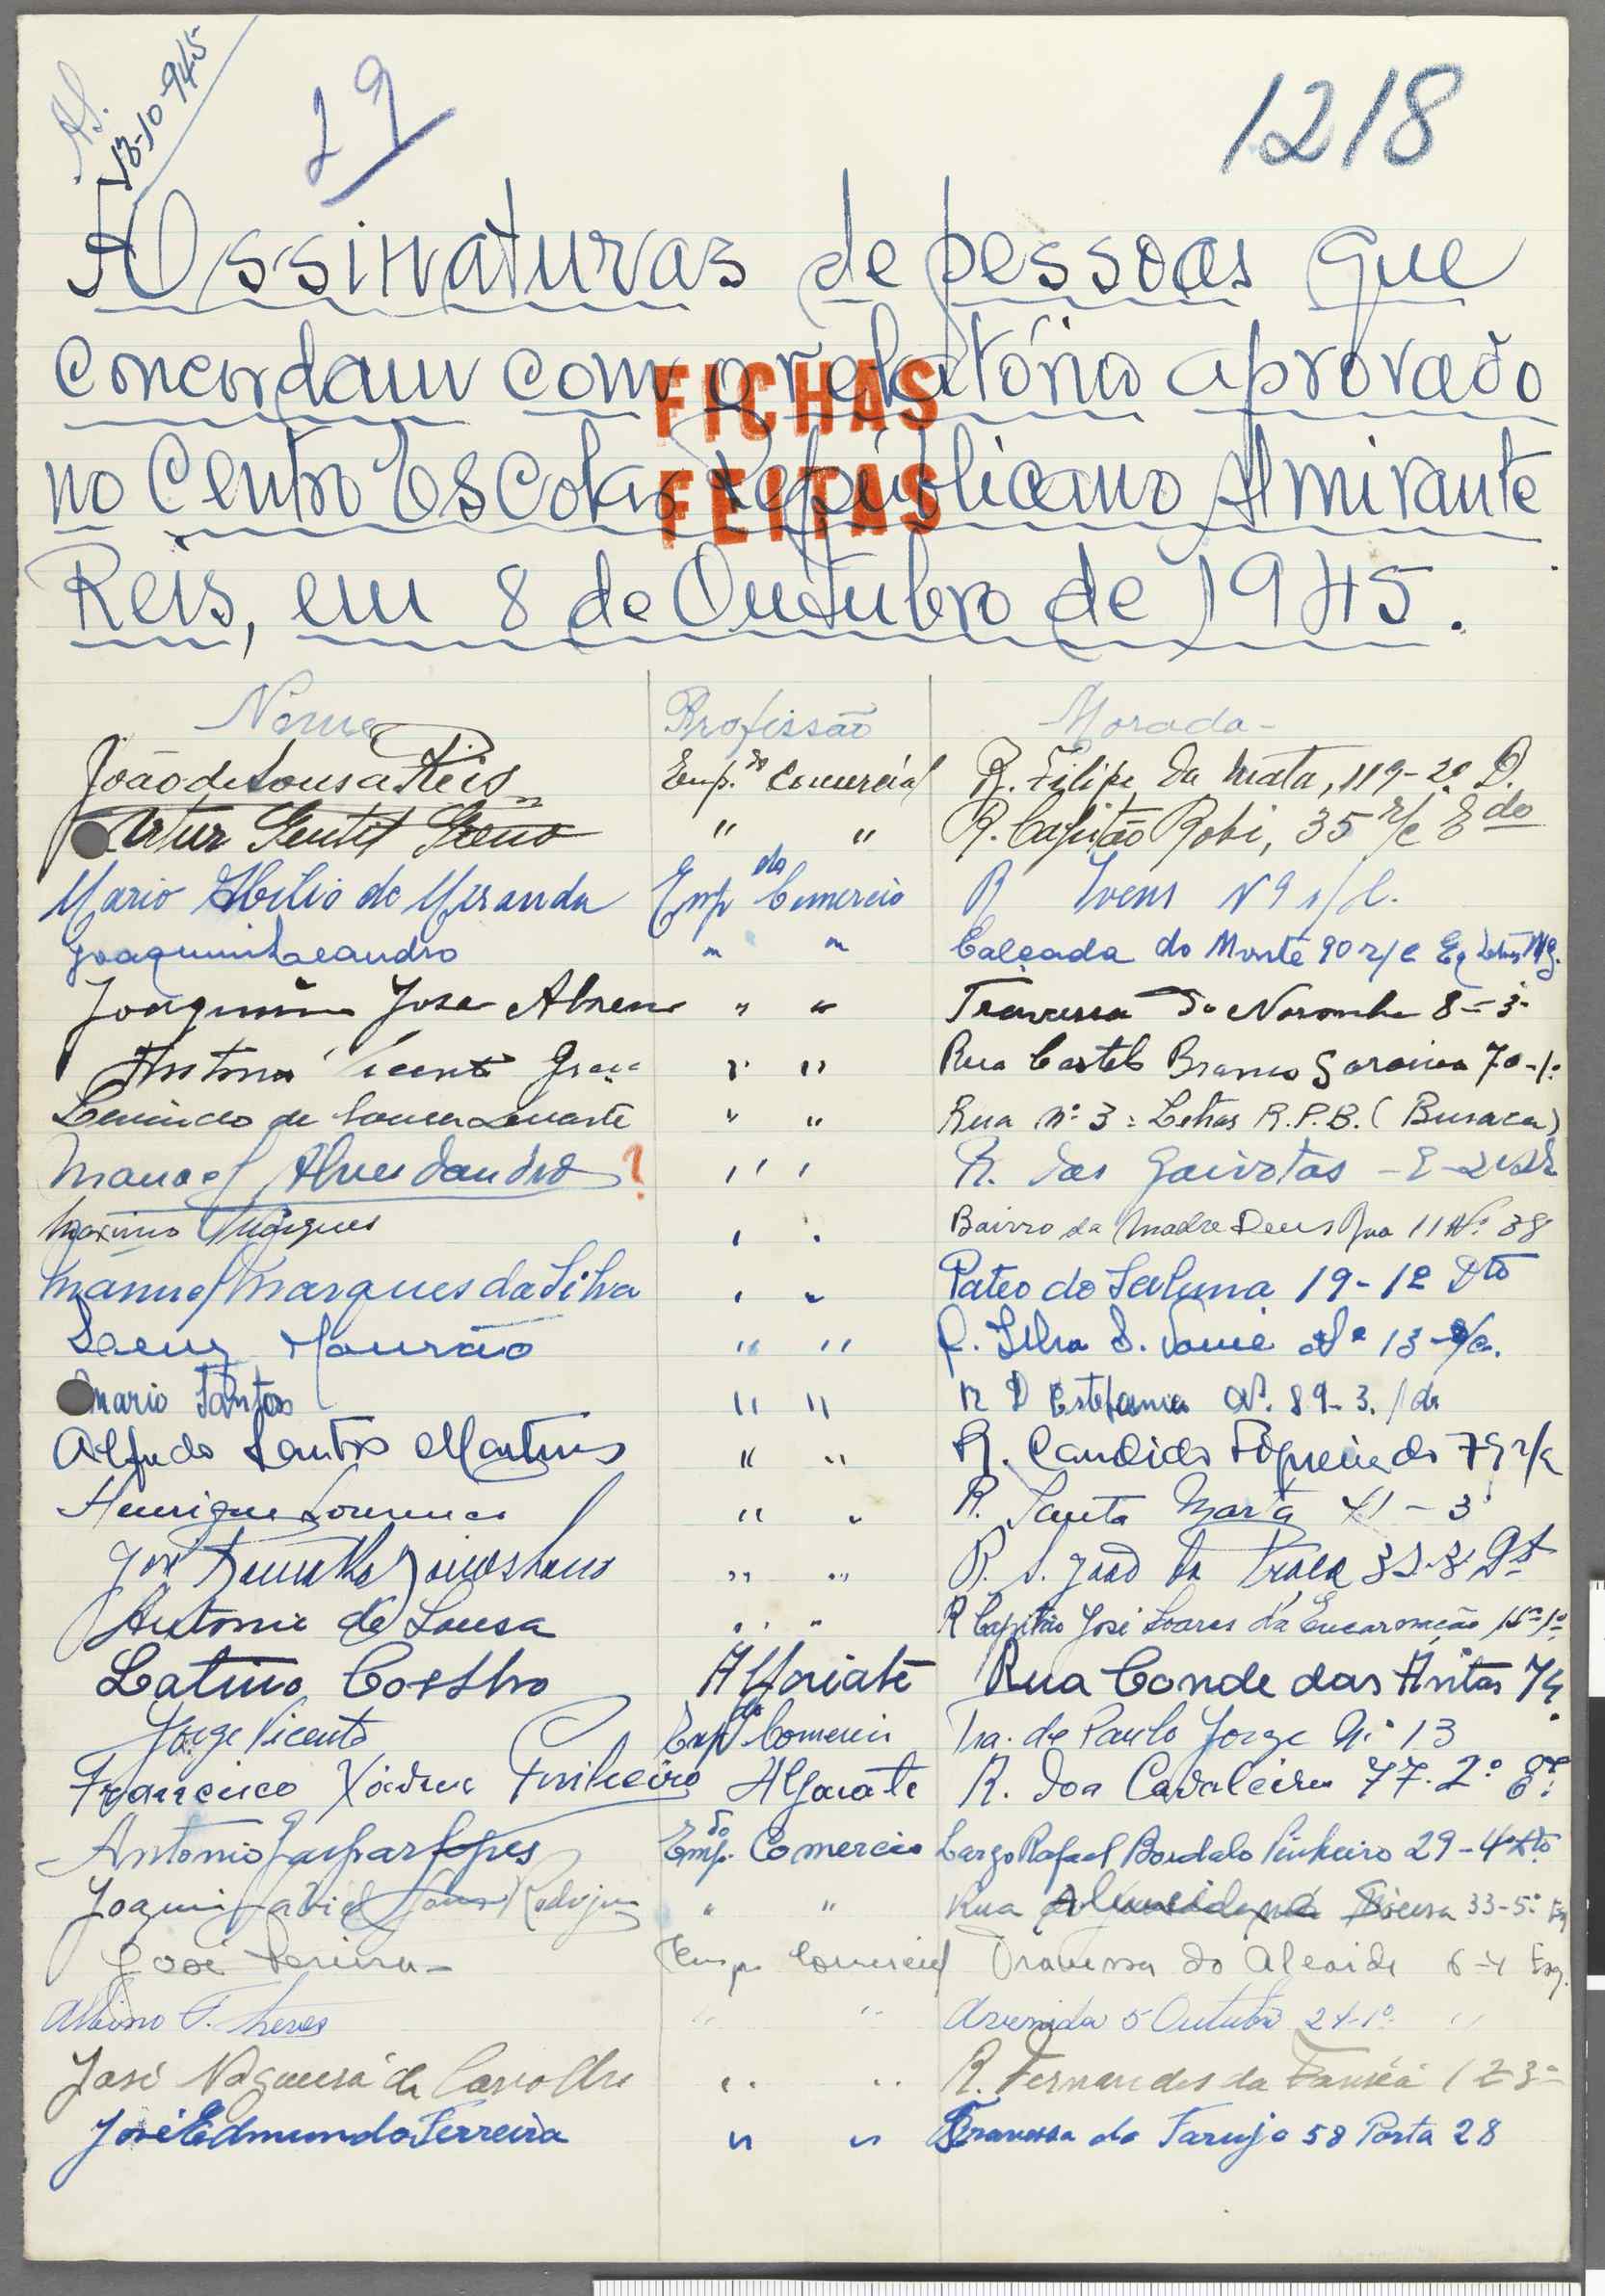 13-10-945
29
1218
Assinaturas de pessoas que
concordam com o relatório aprovado
no Centro Escolar Republicano Almirante
Reis, em 8 de Outubro de 1945.
FICHAS
FEITAS
Nome Profissão Morada
João de Sousa Reis Emp. do Comercial R. Filipe da Mata, 119-2º D.
Artur Gentil R. Capitão Robi, 35 r/c Edo
Mario Abilio de Miranda Emp do Comercio R Ivens Nº 9 r/c.
Joaquim Leandro " " Calçada do Monte 90 r/c
Joaquim José Abreu " " Travessa do Noronha 8-3º
Antonio Vicente Graça " " Rua Castelo Branco Saraiva 70-1º
de Sousa Duarte " " Rua nº 3 = Letras R.P.B. (Buraca)
Manoel Alves ? " " R. das Gaivotas
Maximo Marques " " Bairro da Madre Deus Rua 11 Nº 38
Manuel Marques da Silva " " Pateo do Saluna 19-1º Dto
Mourão " " Nº 13
Mario Santos " " R D Estefania Nº. 89-3.
Alfredo Santos Martins " " R. Candido Figueiredo 79 r/c
Henrique Lourenço " " R. Santa Marta 41-3
José " " R. S. João da Praça
Antonio de Sousa " " R Capitão José Soares da Encarnação
Latino Coelho Alfaiate Rua Conde das Antas 74
Jorge Vicente Emp do Comercio Tra. de Paulo Jorge Nº 13
Francisco Xavier Pinheiro Alfaiate R. dos Cavaleiros 77-2º
Antonio Gaspar Lopes Emp. do Comercio Largo Rafael Bordalo Pinheiro 29-4º Dto
Joaquim " " Rua Sousa 33-5º
José Pereira Emp. Comercial Travessa do Alcaide 6-4 Esq.
Albino F. " " Avenida 5 Outubro
José Nogueira de Carvalho " " R. Fernandes da Fonseca
José Edmundo Ferreira " " Travessa do Tarujo 58 Porta 28